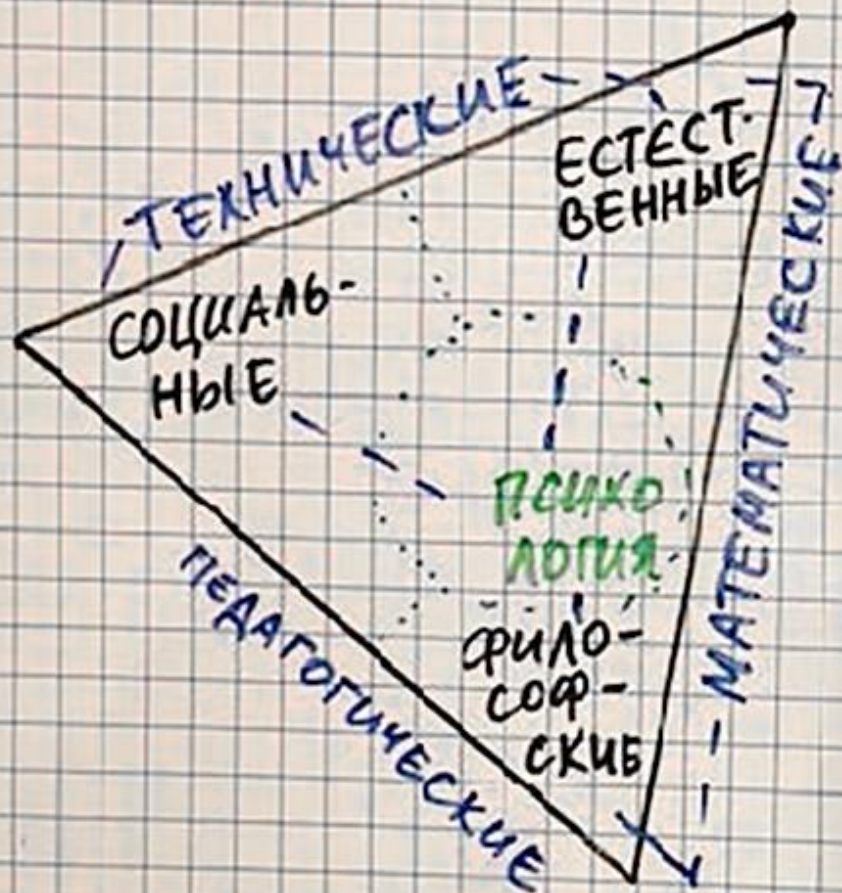 ТЕХНИЧЕСКИЕ
ЕСТЕСТ-
ВЕННЫЕ
МАТЕМАТИЧЕСКИЕ
СОЦИАЛЬ-
НЫЕ
ПСИХО
ЛОГИЯ
ФИЛО-
СОФ-
СКИЕ
ПЕДАГОГИЧЕСКИЕ